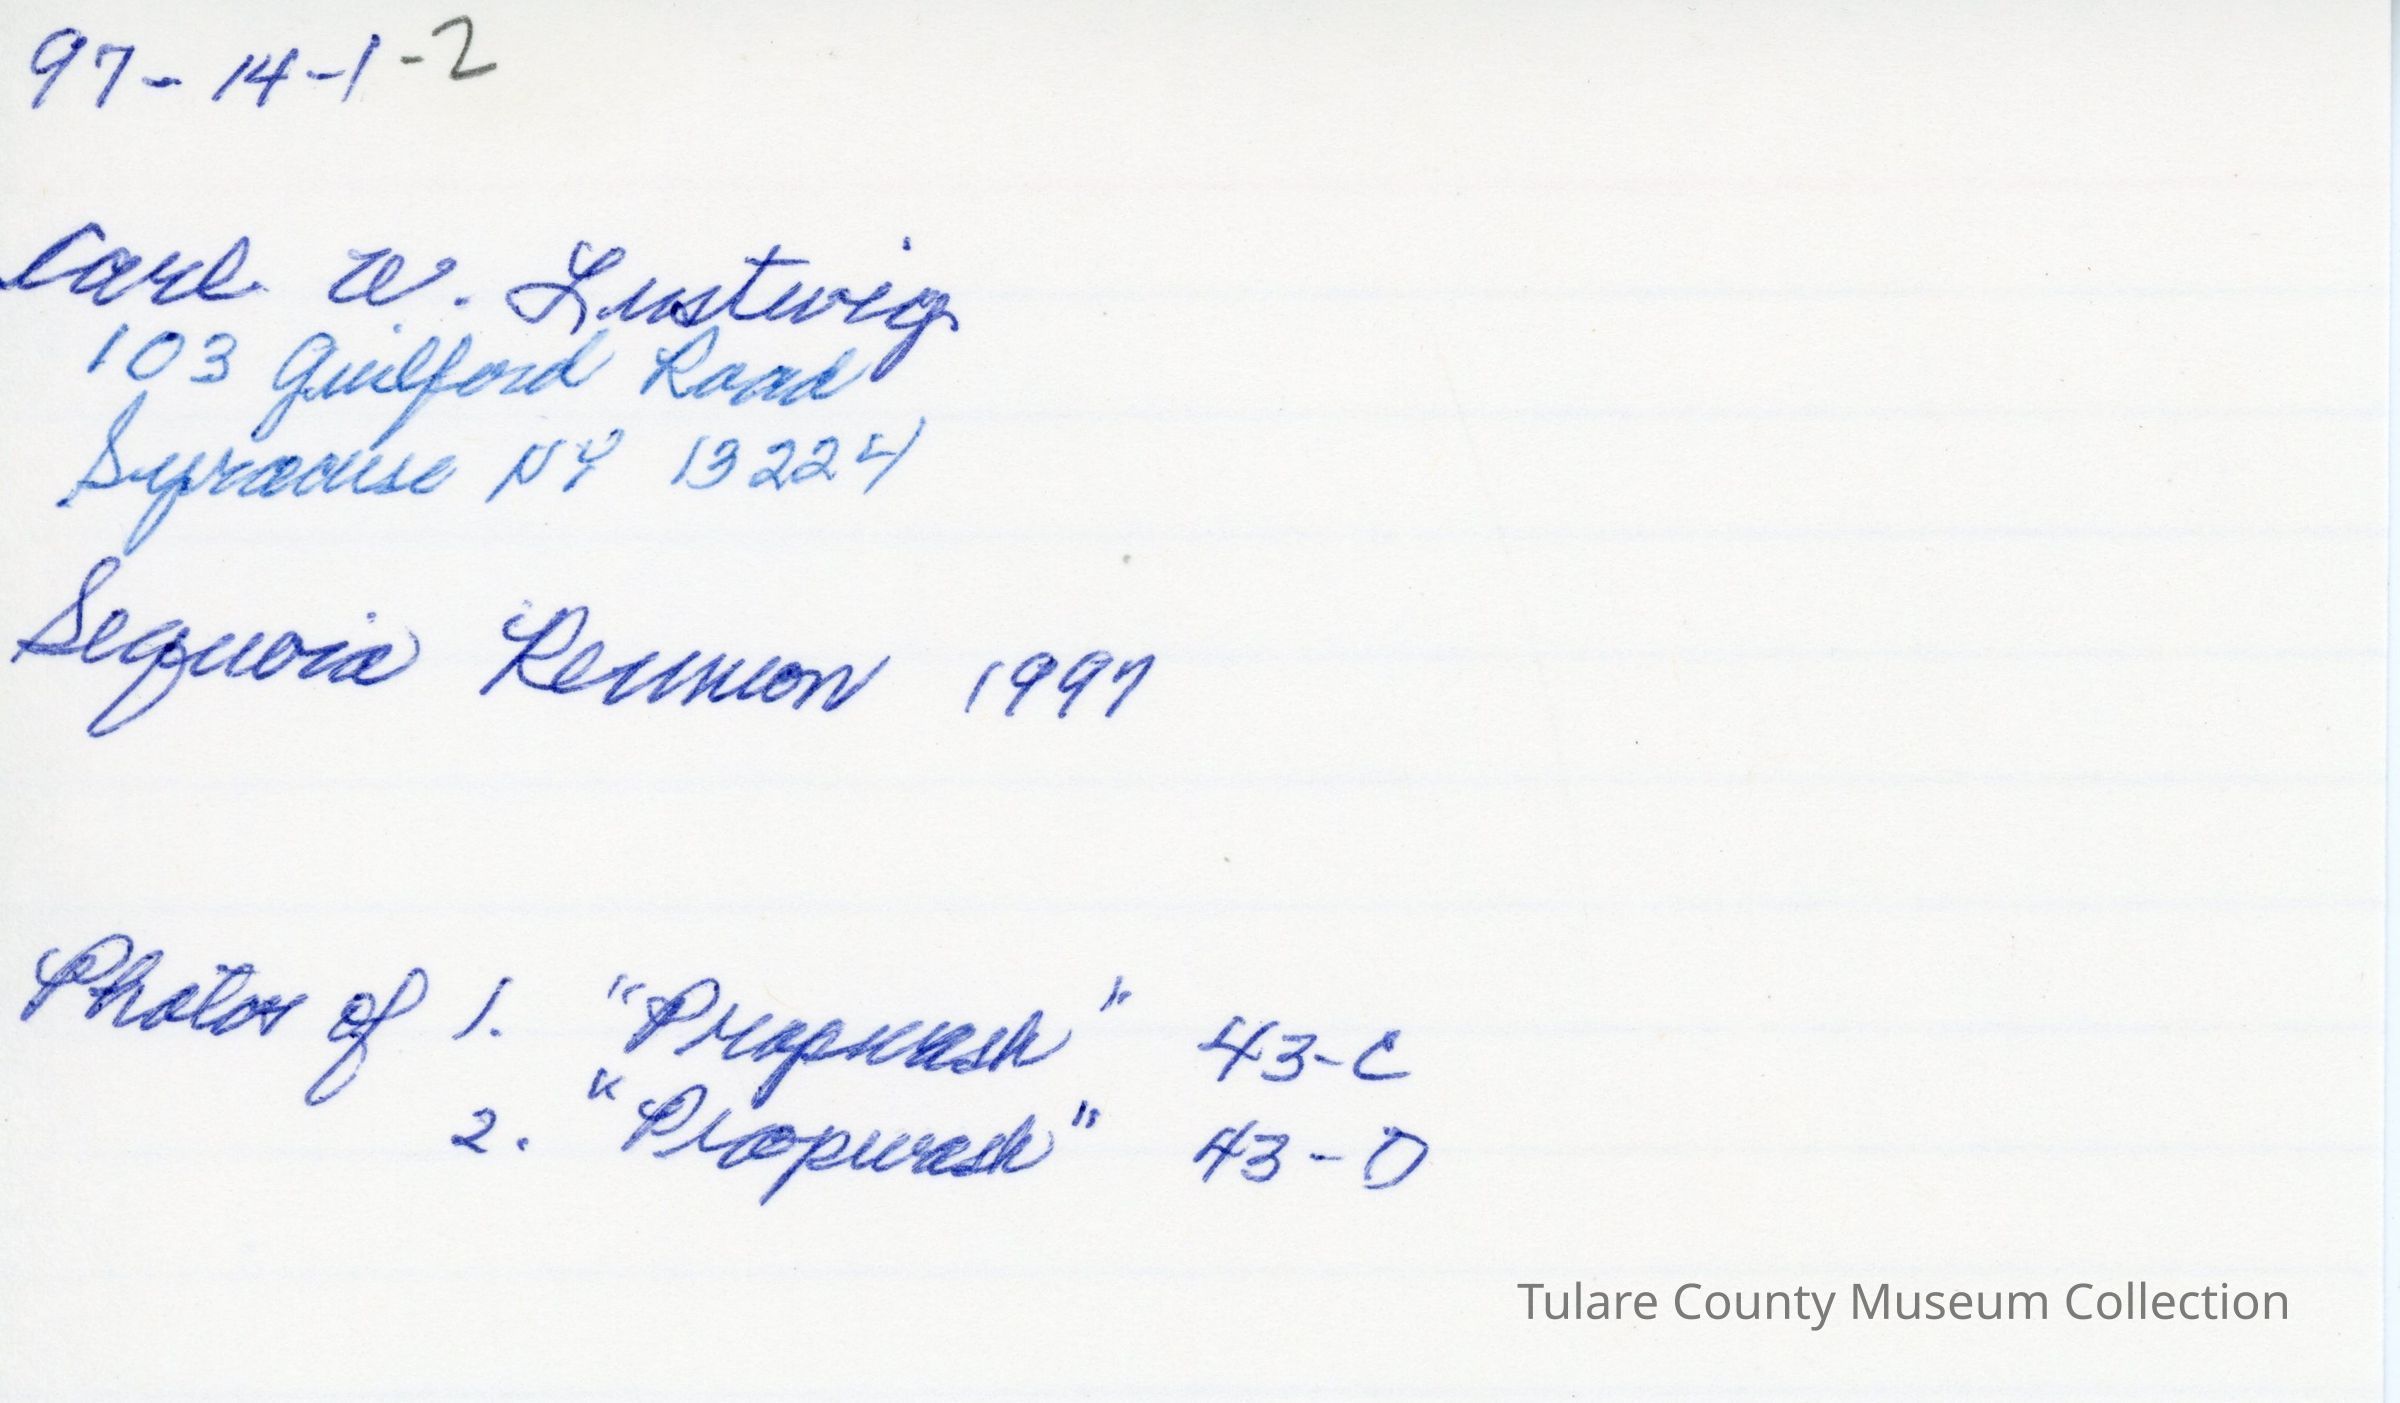 97-14-1-2
Carl W. Lustwig
103 Guilford Road
Syracuse NY 13224
Sequoia Reunion 1997
Photos of 1. "Propwash" 43-C
2. "Propwash" 43-D
Tulare County Museum Collection